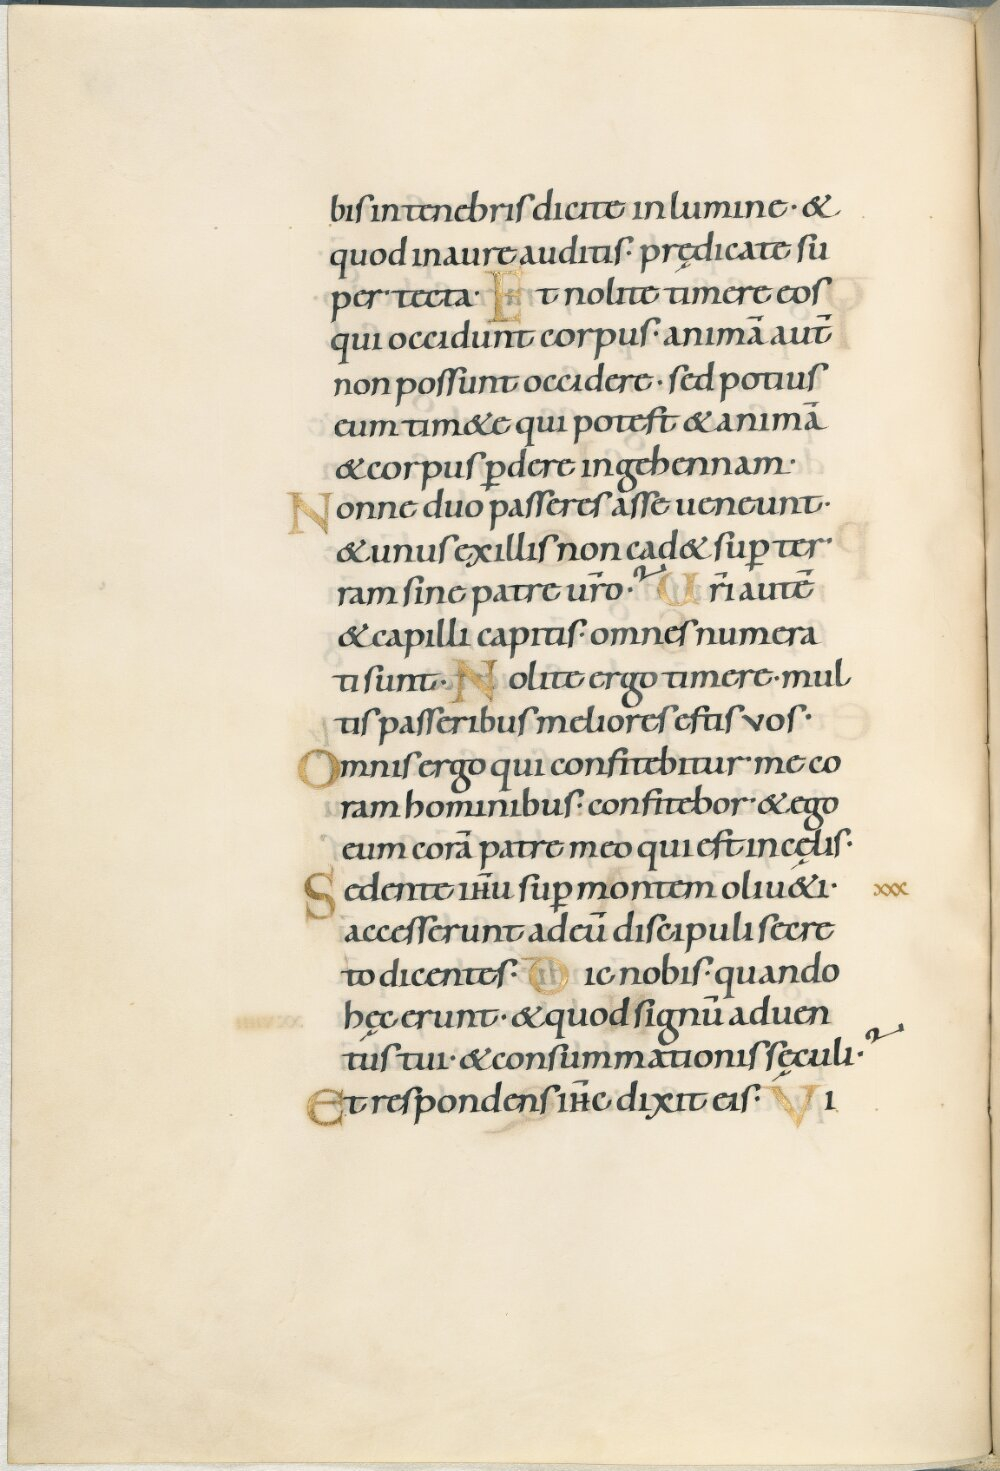 bis in tenebris dicite in lumine· &
quod in aure auditis· prędicate su
per tecta· Et nolite timere eos
qui occidunt corpus· animā aut̄
non possunt occidere· sed potius
eum tim&e qui potest & animā
& corpus ꝑdere in gehennam·
Nonne duo passeres asse ueneunt·
& unus ex illis non cad& suꝑ ter
ram sine patre ur̄o· Ur̄i autē
& capilli capitis· omnes numera
ti sunt· Nolite ergo timere· mul
tis passeribus meliores estis vos·
Omnis ergo qui confitebitur me co
ram hominibus· confitebor & ego
eum corā patre meo qui est in cęlis·
Sedente ih̄u suꝑ montem oliu&i· xxx
accesserunt ad eū discipuli secre
to dicentes· Dic nobis· quando
hęc erunt· & quod signū aduen
tus tui· & consummationis sęculi·
Et respondens ih̄c dixit eis· Vi